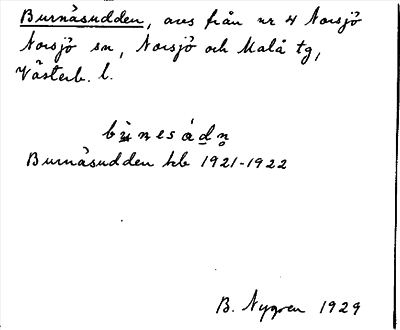 Burnäsudden, avs från nr 4 Norsjö
Norsjö sn, Norsjö och Malå tg,
Västerb. l.
Burnäsudden hb 1921-1922
B. Nygren 1929